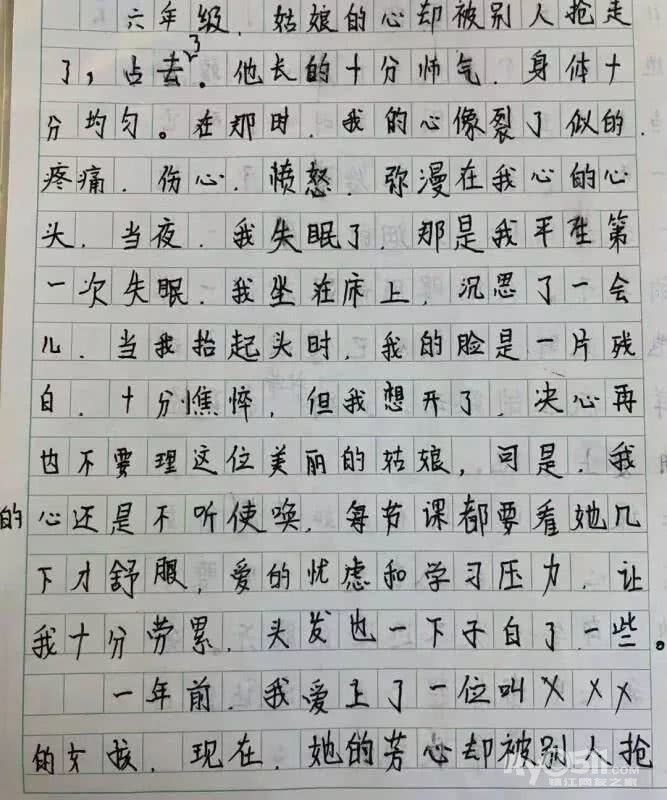 六年级，姑娘的心却被别人抢走
了，占去²³。他长的十分帅气，身体十
分均匀。在那时，我的心像裂了似的，
疼痛，伤心，愤怒，弥漫在我心的心
头，当夜，我失眠了，那是我平生第
一次失眠，我坐在床上，沉思了一会
儿，当我抬起头时，我的脸是一片残
白，十分憔悴，但我想开了，决心再
也不要理这位美丽的姑娘，可是，我
的心还是不听使唤，每节课都要看她几
下才舒服，爱的忧虑和学习压力，让
我十分劳累，头发也一下子白了一些。
一年前，我爱上了一位叫XXX
的女孩，现在，她的芳心却被别人抢